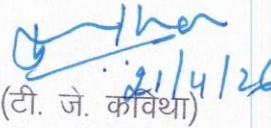 21/4/26
(टी. जे. कविथा)